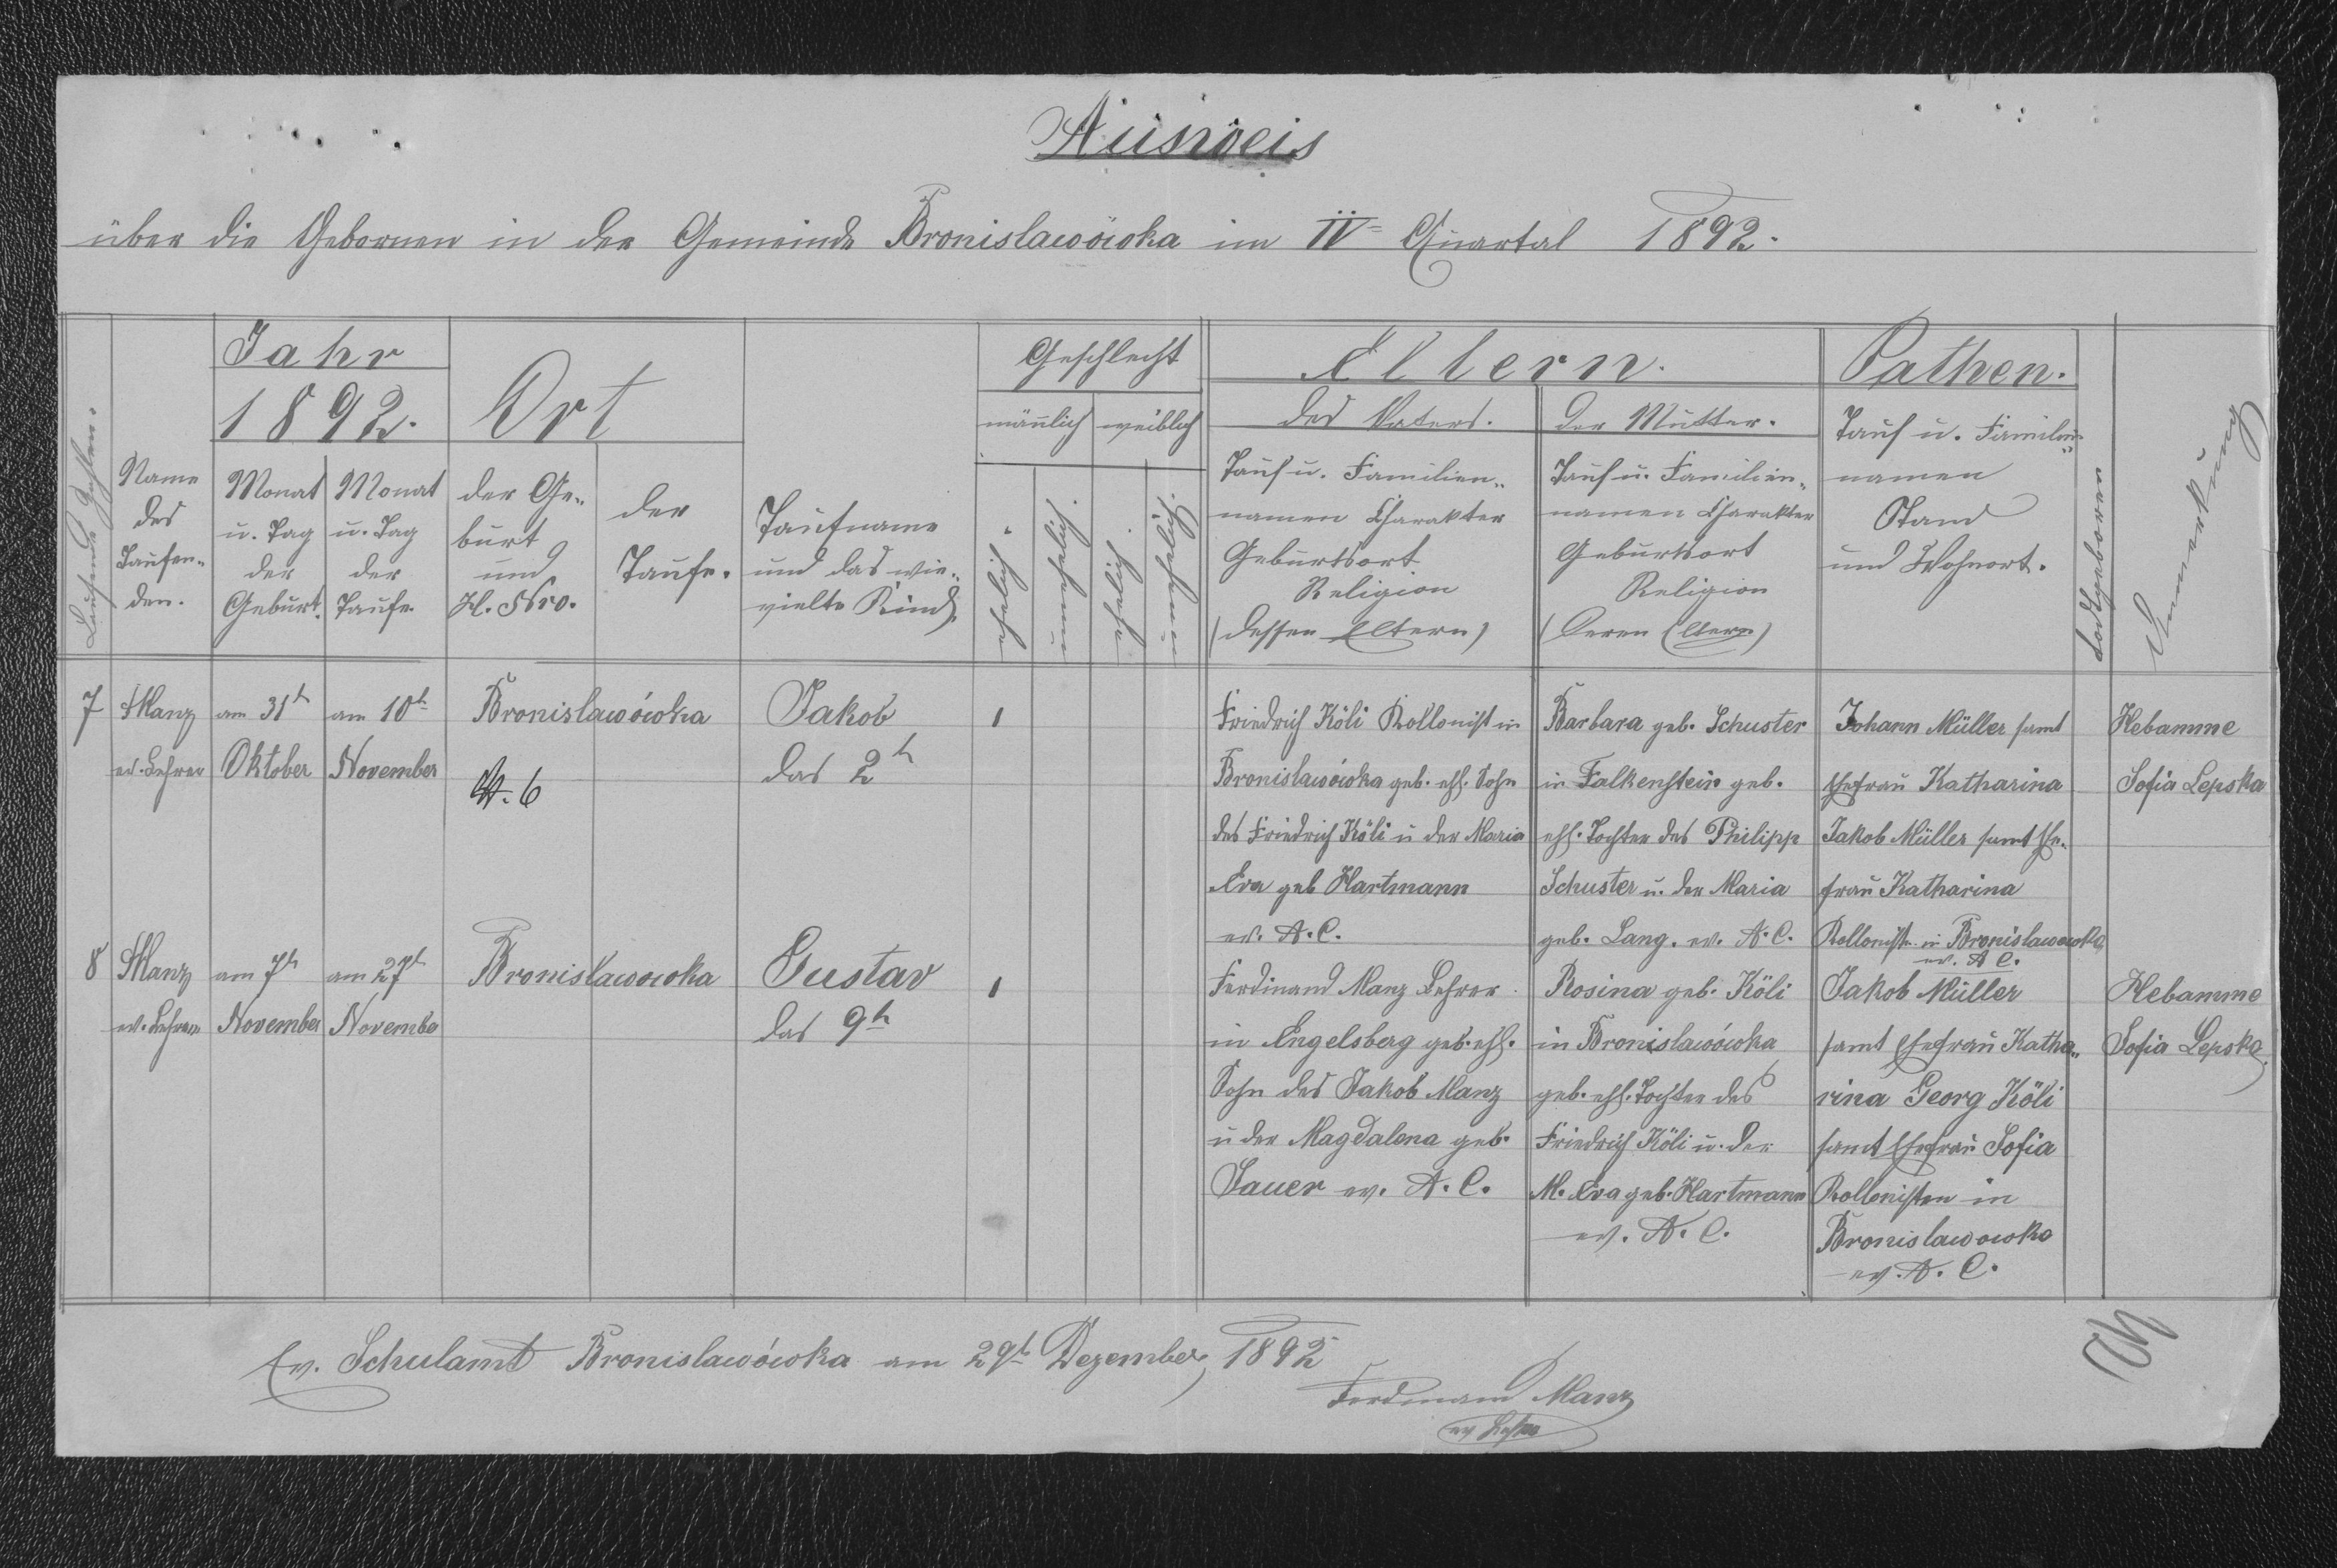 Ausweis
über die Gebornen in der Gemeinde Bronislawówka im IV= Quartal 1892.
Laufende Zahlen.
Name
des
Taufen„
den.
Jahr
1892.
Monat
u. Tag
der
Geburt.
Monat
u. Tag
der
Taufe.
Ort
der Ge„
burt
und
H. Nro.
der
Taufe.
Taufname
und das wie„
vielte Kind.
Geschlecht
mänlich
weiblich
ehelich.
unehelich.
ehelich.
unehelich.
Eltern.
des Vaters.
Tauf u. Familien„
namen Charakter
Geburtsort
Religion
(dessen Eltern)
der Mutter.
Tauf u. Familien„
namen Charakter
Geburtsort
Religion
(Deren Eltern)
Pathen.
Tauf u. Familien„
namen
Stand
und Wohnort.
todtgeboren
Anmerkung
7
Manz
ev. Lehrer
am 31t
Oktober
am 10t
November
Bronislawówka
N. 6
Jakob
das 2t
1
Friedrich Köli Kollonist in
Bronislawówka geb. ehl. Sohn
des Friedrich Köli u der Maria
Eva geb Hartmann
ev. A. C.
Barbara geb. Schuster
in Falkenstein geb.
ehl. Tochter des Philipp
Schuster u. der Maria
geb. Lang. ev. A. C.
Johann Müller samt
Ehefrau Katharina
Jakob Müller samt Ehe„
frau Katharina
Kollonisten in Bronislawowka
ev. A C.
Hebamme
Sofia Lepska
8
Manz
ev. Lehrer
am 7t
November
am 27t
Novembe
Bronislawowka
Gustav
das 9t
1
Ferdinand Manz Lehrer
in Engelsberg geb. ehl.
Sohn des Jakob Manz
u der Magdalena geb.
Sauer ev. A. C.
Rosina geb. Köli
in Bronislawówka
geb. ehl. Tochter des
Friedrich Köli u. der
M. Eva geb. Hartmann
ev. A. C.
Jakob Müller
samt Ehefrau Katha„
rina Georg Köli
samt Ehefrau Sofia
Kollonisten in
Bronislawowka
ev. A. C.
Hebamme
Sofia Lepska
Ev. Schulamt Bronislawówka am 29t Dezember 1892
Ferdinand Manz
ev Lehrer